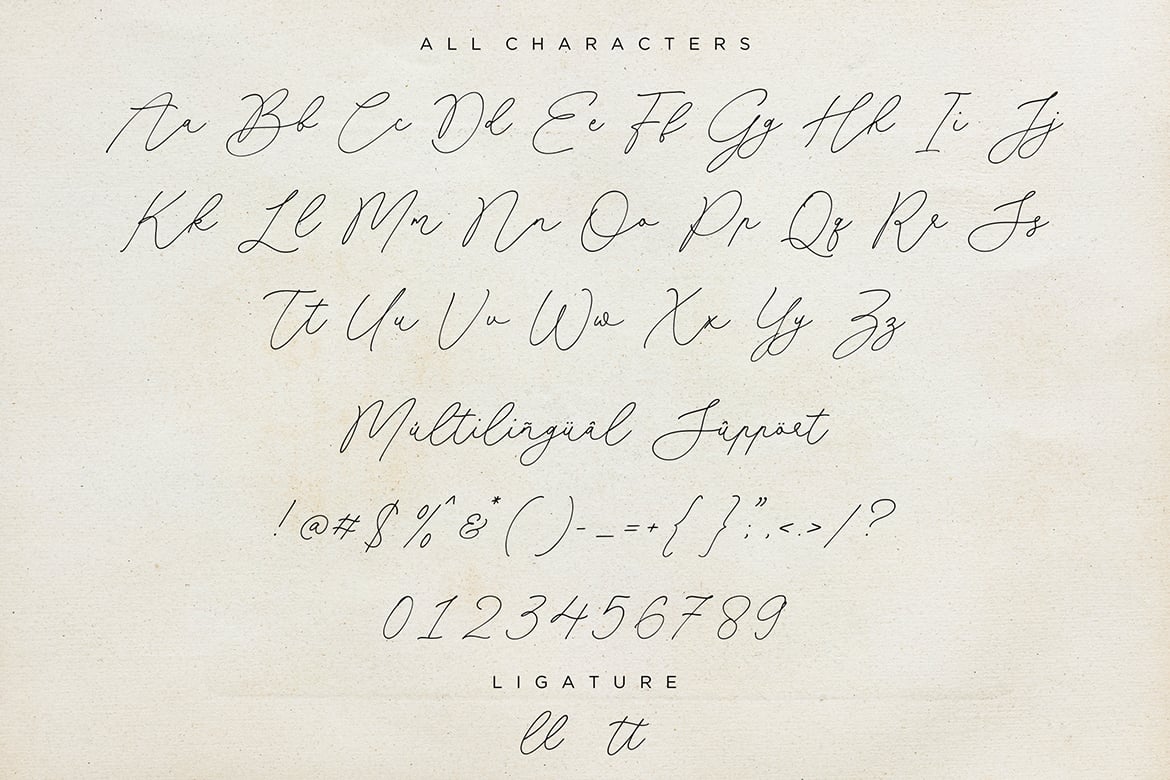 ALL CHARACTERS
Aa Bb Cc Dd Ee Ff Gg Hh Ii Jj
Kk Ll Mm Nn Oo Pp Qq Rr Ss
Tt Uu Vv Ww Xx Yy Zz
Múltiliñgüâl Sûppört
!@#$%^&*()-_=+{};",<.>/?
0123456789
LIGATURE
ll tt